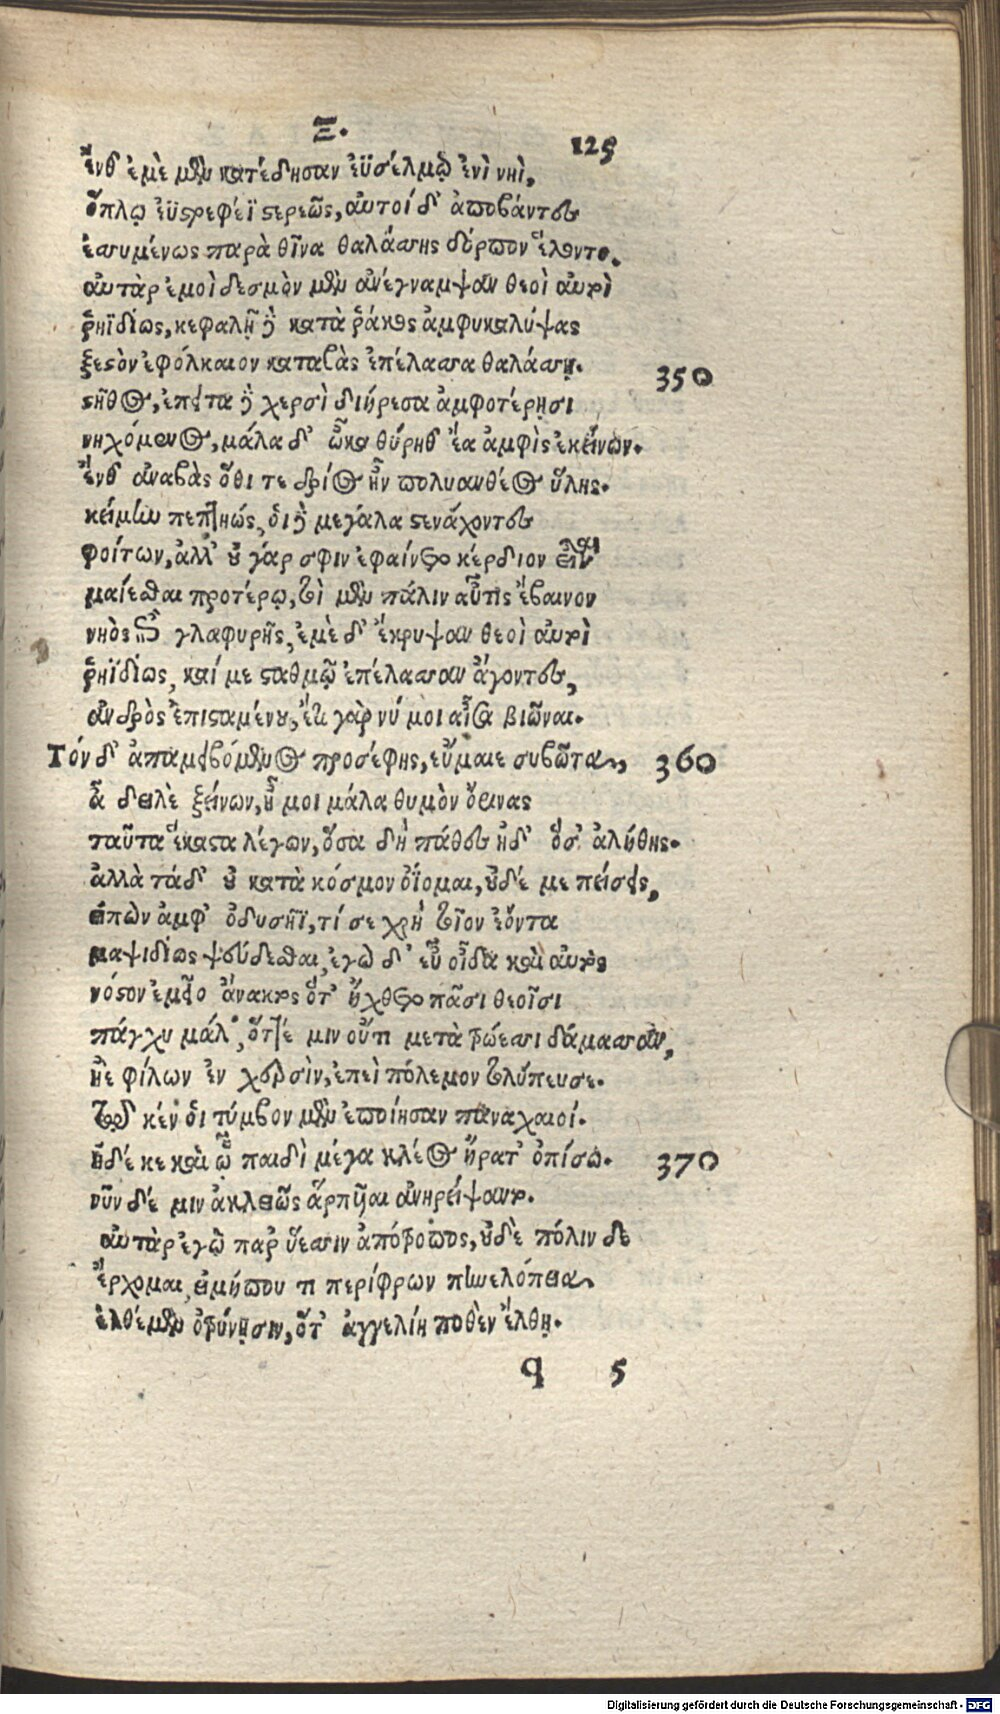 Ξ. 125
ἔνθ' ἐμὲ μὲν κατέδησαν ἐϋσέλμῳ ἐνὶ νηὶ,
ὅπλῳ ἐϋστρεφέϊ στερεῶς, αὐτοί δ' ἀποβάντες
ἐσσυμένως παρὰ θῖνα θαλάσσης δόρπον ἕλοντο.
αὐτὰρ ἐμοὶ δεσμὸν μὲν ἀνέγναμψαν θεοὶ αὐτοὶ
ῥηϊδίως, κεφαλῇ δὲ κατὰ ῥάκος ἀμφικαλύψας
ξεστὸν ἐφόλκαιον καταβὰς ἐπέλασσα θαλάσσῃ. 350
στῆθος, ἔπειτα δὲ χερσὶ διήρεσα ἀμφοτέρῃσι
νηχόμενος, μάλα δ' ὦκα θύρηθ' ἔα ἀμφὶς ἐκείνων.
ἔνθ' ἀναβὰς ὅθι τε δρίος ἦν πολυανθέος ὕλης.
κείμην πεπτηώς, οἱ δὲ μεγάλα στενάχοντες
φοίτων, ἀλλ' οὐ γάρ σφιν ἐφαίνετο κέρδιον εἶναι
μαίεσθαι προτέρω, τοὶ μὲν πάλιν αὖτις ἔβαινον
νηὸς ἐπὶ γλαφυρῆς, ἐμὲ δ' ἔκρυψαν θεοὶ αὐτοὶ
ῥηϊδίως, καί με σταθμῷ ἐπέλασσαν ἄγοντες,
ἀνδρὸς ἐπισταμένου, ἔτι γὰρ νύ μοι αἶσα βιῶναι.
Τόν δ' ἀπαμειβόμενος προσέφης, εὔμαιε συβῶτα, 360
ἆ δειλὲ ξείνων, ἦ μοι μάλα θυμὸν ὄρινας
ταῦτα ἕκαστα λέγων, ὅσα δὴ πάθες ἠδ' ὅσ' ἀλήθης.
ἀλλὰ τάδ' οὐ κατὰ κόσμον ὀΐομαι, οὐδέ με πείσεις,
εἰπὼν ἀμφ' ὀδυσῆϊ, τί σε χρὴ τοῖον ἐόντα
μαψιδίως ψεύδεσθαι, ἐγὼ δ' εὖ οἶδα καὶ αὐτὸς
νόστον ἐμεῖο ἄνακτος ὅτ' ἤχθετο πᾶσι θεοῖσι
πάγχυ μάλ', ὅττέ μιν οὔτι μετὰ τρώεσσι δάμασσαν,
ἠὲ φίλων ἐν χερσὶν, ἐπεὶ πόλεμον τολύπευσε.
τῷ κέν οἱ τύμβον μὲν ἐποίησαν παναχαιοί.
ἠδέ κε καὶ ᾧ παιδὶ μέγα κλέος ἤρατ' ὀπίσω. 370
νῦν δέ μιν ἀκλειῶς ἅρπυιαι ἀνηρείψαντο.
αὐτὰρ ἐγὼ παρ' ὕεσσιν ἀπότροπος, οὐδὲ πόλιν δὲ
ἔρχομαι, εἰ μήπου τι περίφρων πηνελόπεια
ἐλθέμεν ὀτρύνῃσιν, ὅτ' ἀγγελίη ποθὲν ἔλθῃ.
q 5
Digitalisierung gefördert durch die Deutsche Forschungsgemeinschaft - DFG